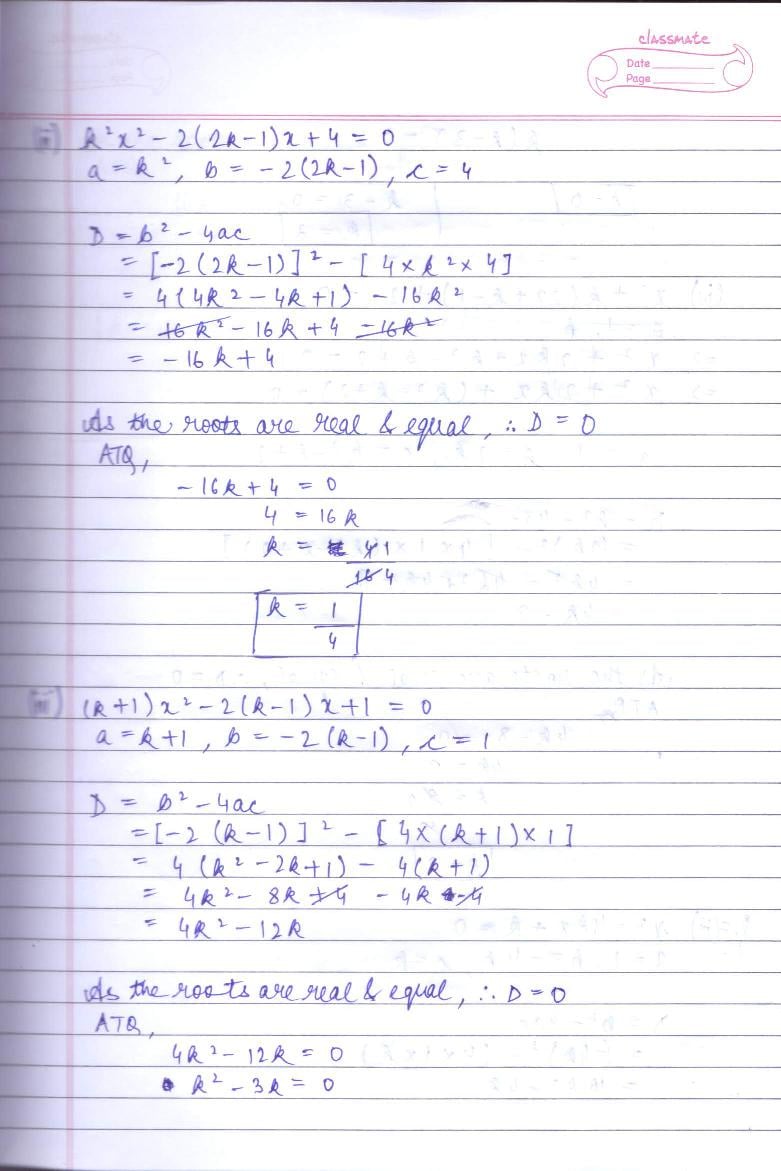 classmate
Date
Page
ii) k²x² - 2(2k-1)x + 4 = 0
a = k², b = -2(2k-1), c = 4
D = b² - 4ac
= [-2(2k-1)]² - [4×k²×4]
= 4(4k² - 4k + 1) - 16k²
= 16k² - 16k + 4 - 16k²
= -16k + 4
As the roots are real & equal, ∴ D = 0
ATQ,
-16k + 4 = 0
4 = 16k
k = 4 1
16 4
k = 1
4
iii) (k+1)x² - 2(k-1)x + 1 = 0
a = k+1, b = -2(k-1), c = 1
D = b² - 4ac
= [-2(k-1)]² - [4×(k+1)×1]
= 4(k² - 2k + 1) - 4(k+1)
= 4k² - 8k + 4 - 4k - 4
= 4k² - 12k
As the roots are real & equal, ∴ D = 0
ATQ,
4k² - 12k = 0
k² - 3k = 0